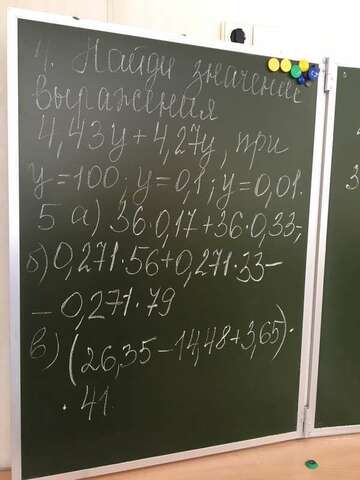 4. Найди значение
выражения
4,43y+4,27y, при
y=100; y=0,1; y=0,01.
5 а) 36·0,17+36·0,33;
б) 0,271·56+0,271·33−
− 0,271·79
в) (26,35−14,48+3,65)·
·41
3